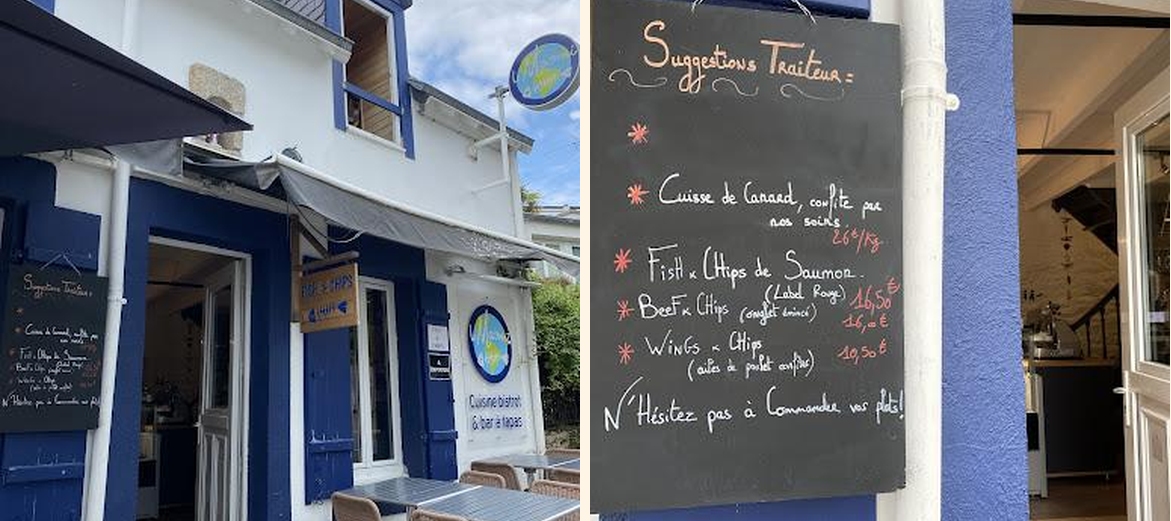 Cuisine bistrot
& bar à tapas
Suggestions Traiteur =
Cuisse de Canard, confite par
nos soins
26€/Kg
Fish & Chips de Saumon.
(Label Rouge) 16,50€
Beef & Chips (onglet émincé) 16,00€
Wings & Chips 10,50€
(ailes de poulet confites)
N'Hésitez pas à Commander vos plats!